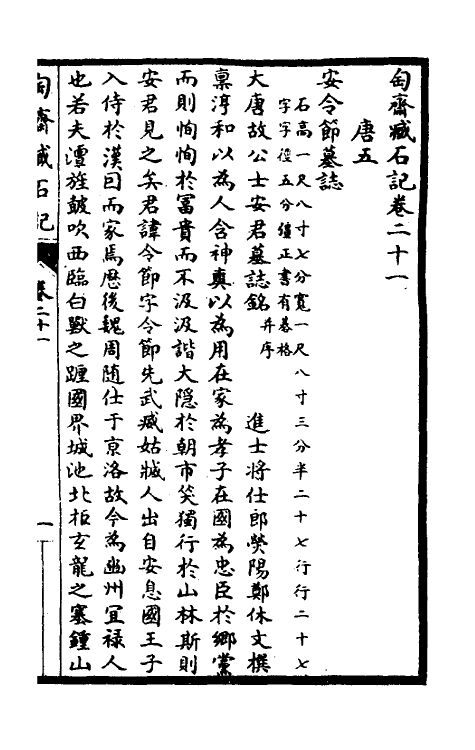 匋齋臧石記卷二十一
唐五
安令節墓誌
石高一尺八寸七分寬一尺八寸三分半二十七行行二十七
字字徑五分強正書有碁格
大唐故公士安君墓誌銘并序 進士將仕郎滎陽鄭休文撰
稟渟和以為人含神真以為用在家為孝子在國為忠臣於鄉黨
而則恂恂於冨貴而不汲汲諧大隠於朝市笑獨行於山林斯則
安君見之矣君諱令節字令節先武威姑臧人出自安息國王子
入侍於漢囙而家焉厯後魏周隋仕于京洛故今為豳州宜禄人
也若夫澶旌皷吹西臨白獸之躔國界城池北拒玄龍之塞鍾山
匋齋臧石記
卷二十一
一